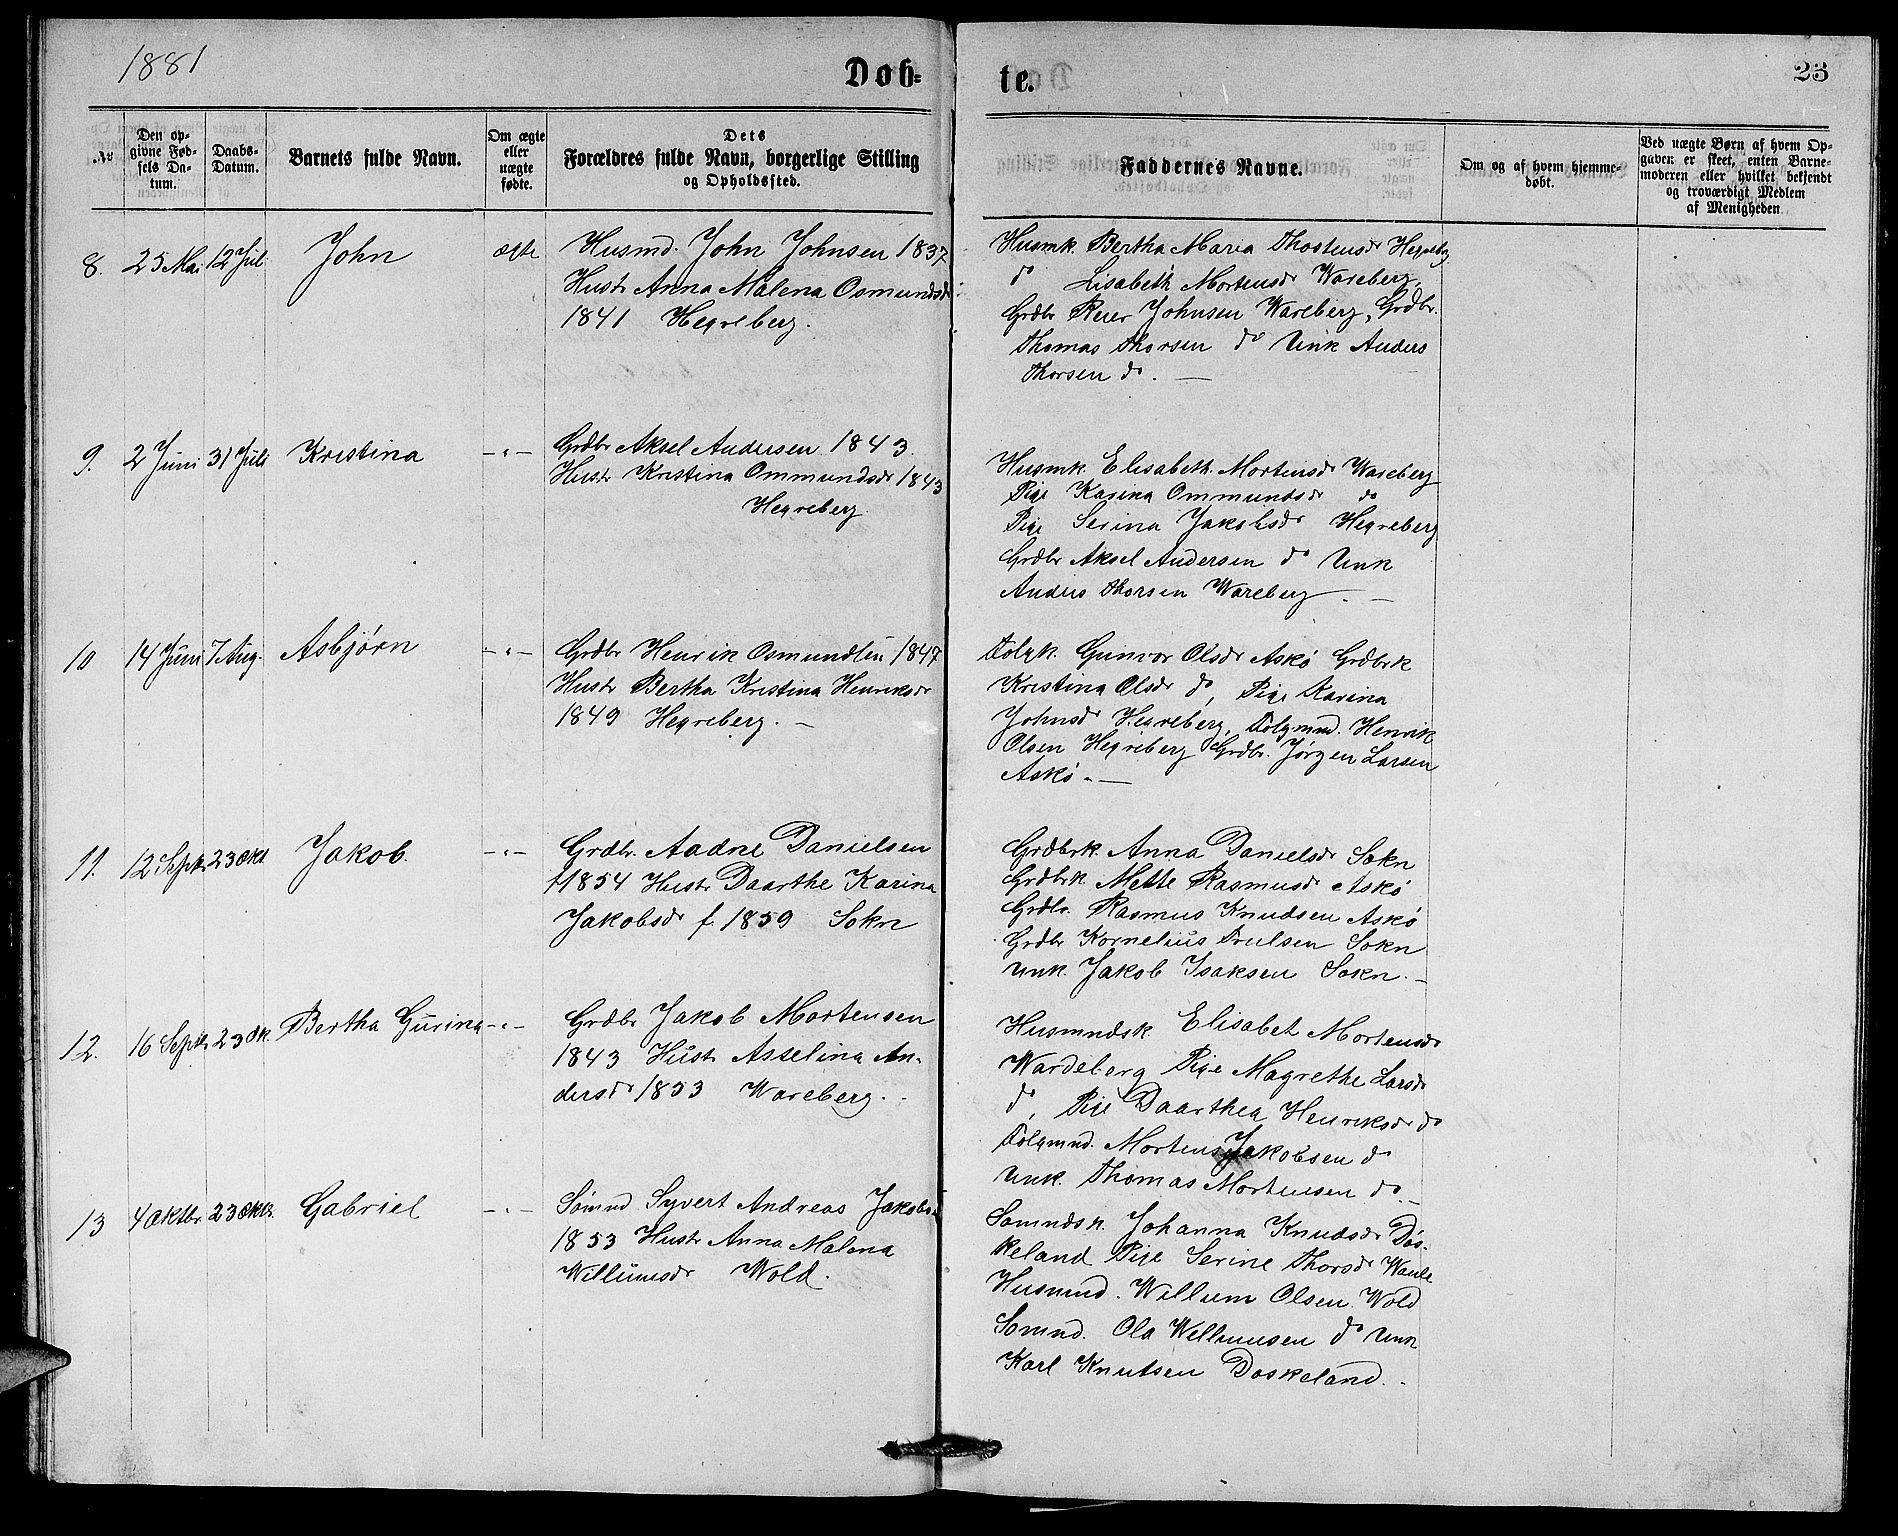 1881
Døb-
te.
23
No
Den op-
givne Fød-
sels Da-
tum.
Daabs-
Datum.
Barnets fulde Navn.
Om ægte
eller
uægte
fødte.
Dets
Forældres fulde Navn, borgerlige Stilling
og Opholdssted.
Faddernes Navne.
Om og af hvem hjemme-
døbt.
Ved uægte Børn af hvem Op-
gaven er skeet, enten Barne-
moderen eller hvilket bekjendt
og troværdigt Medlem
af Menigheden
8. 25 Mai 12 Jul John ægte
Husmd. John Johnsen 1837
Hustr Anna Malena Osmundsdr
1841 Hegreberg.
Husmk. Bertha Maria Thostensdr Hegrebg
do Lisabeth Mortensdr Wareberg,
Grdbr Reier Johnsen Wareberg, Grdbr.
Thomas Thorsen do Unk Anders
Thorsen do. —
9. 2 Juni 31 Juli Kristina -"-
Grdbr Aksel Andersen 1843.
Hustr Kristina Ommundsdr 1843
Hegreberg
Husmk. Elisabeth Mortensdr Wareberg
Pige Karina Ommundsdr do
Pige Serina Jakobsdr Hegreberg
Grdbr Aksel Andersen do Unk
Anders Thorsen Wareberg. —
10 14 Juni 7 Aug. Asbjørn -"-
Grdbr Henrik Osmundsen 1847
Hustr Bertha Kristina Henriksdr
1849 Hegreberg. —
Folgk. Gunvor Olsdr Askö Grdbrk
Kristina Olsdr do, Pige Karina
Johnsdr Hegreberg, Folgmnd. Henrik
Olsen Hegreberg Grdbr. Jørgen Larsen
Askö. —
11. 12 Septr 23 Okt Jakob. -"-
Grdbr. Aadne Danielsen
f 1854 Hustr Daarthe Karina
Jakobsdr f. 1859 Sokn
Grdbrk. Anna Danielsdr Sokn
Grdbrk. Mette Rasmusdr Askö
Grdbr. Rasmus Knudsen Askö
Grdbr Kornelius Trulsen Sokn
Unk. Jakob Isaksen Sokn. —
12. 16 Septr 23 Ok. Bertha Gurina -"-
Grdbr Jakob Mortensen
1843 Hustr Asselina An-
dersdr 1853 Wareberg. -
Husmndsk. Elisabet Mortensdr
Wardeberg Pige Magrethe Larsdr
do, Pige Daarthea Henriksdr do
Folgmnd. Morten Jakobsen do
Unk. Thomas Mortensen do. —
13 4 Oktbr. 23 Oktr. Gabriel -"-
Sömnd Syvert Andreas Jakobs
1853 Hustr Anna Malena
Willumsdr Wold.
Somndsk. Johanna Knudsdr Dös-
keland Pige Serine Thorsdr Waule
Husmnd. Willum Olsen Wold
Somnd. Ola Willumsen do Unk
Karl Knutsen Doskeland. -